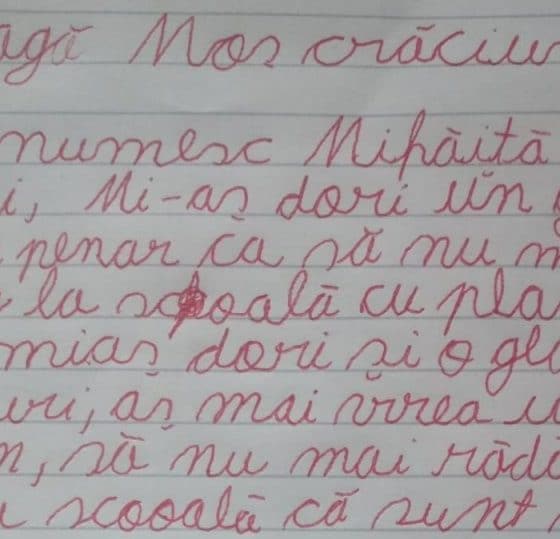 agă Moș crăciu
numesc Mihăită
i, Mi-aș dori un
penar ca să nu m
la scoală cu pla
miaș dori și o gl
uri, aș mai vrrea u
n, să nu mai râd
scooală că sunt